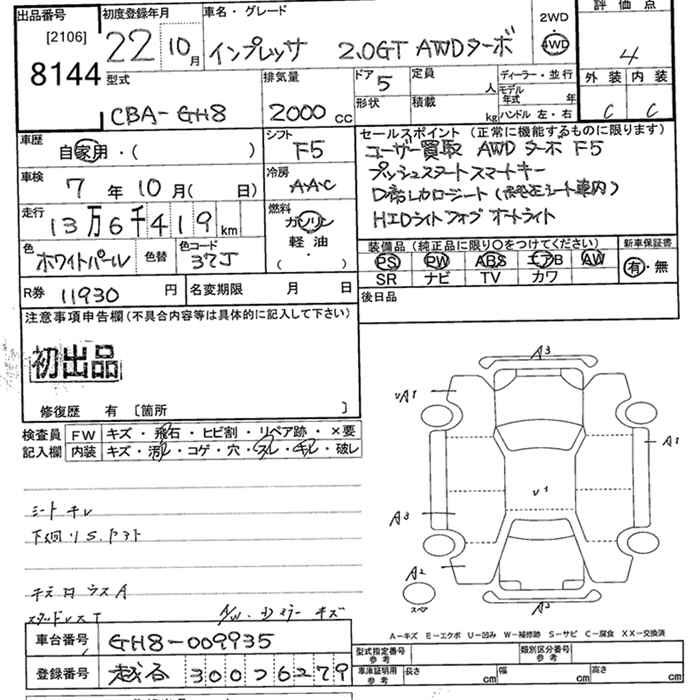 出品番号
[2106]
8144
初度登録年月
22 10月
車名・グレード
インプレッサ 2.0GT AWDターボ
2WD
4WD
評価点
4
型式
CBA-GH8
排気量
2000 cc
ドア
5
定員
人
形状
積載
kg
ディーラー・並行
モデル年式 年
ハンドル 左・右
外装 内装
C C
車歴
自家用・( )
シフト
F5
車検
7年10月( 日)
冷房
AAC
走行
13万6千419km
燃料
ガソリン
軽油
・
( )
色
ホワイトパール
色替
色コード
37J
R券 11930 円
名変期限 月 日
セールスポイント(正常に機能するものに限ります)
ユーザー買取 AWDターボ F5
プッシュスタートスマートキー
HIDライト フォグ オートライト
装備品(純正品に限り○をつけてください)
PS PW ABS エアB AW
SR ナビ TV カワ
新車保証書
有・無
後日品
注意事項申告欄(不具合内容等は具体的に記入して下さい)
初出品
修復歴 有〔箇所 〕
検査員記入欄
FW キズ・飛石・ヒビ割・リペア跡・×要
内装 キズ・汚レ・コゲ・穴・スレ・キレ・破レ
シートキレ
A3
A1
A1
U1
A3
A2
A2
A-キズ E-エクボ U-凹み W-補修跡 S-サビ C-腐食 XX-交換済
車台番号 GH8-009935
登録番号 越谷 300 6279
型式指定番号 参考
類別区分番号 参考
車庫証明用 参考
長さ cm
幅 cm
高さ cm